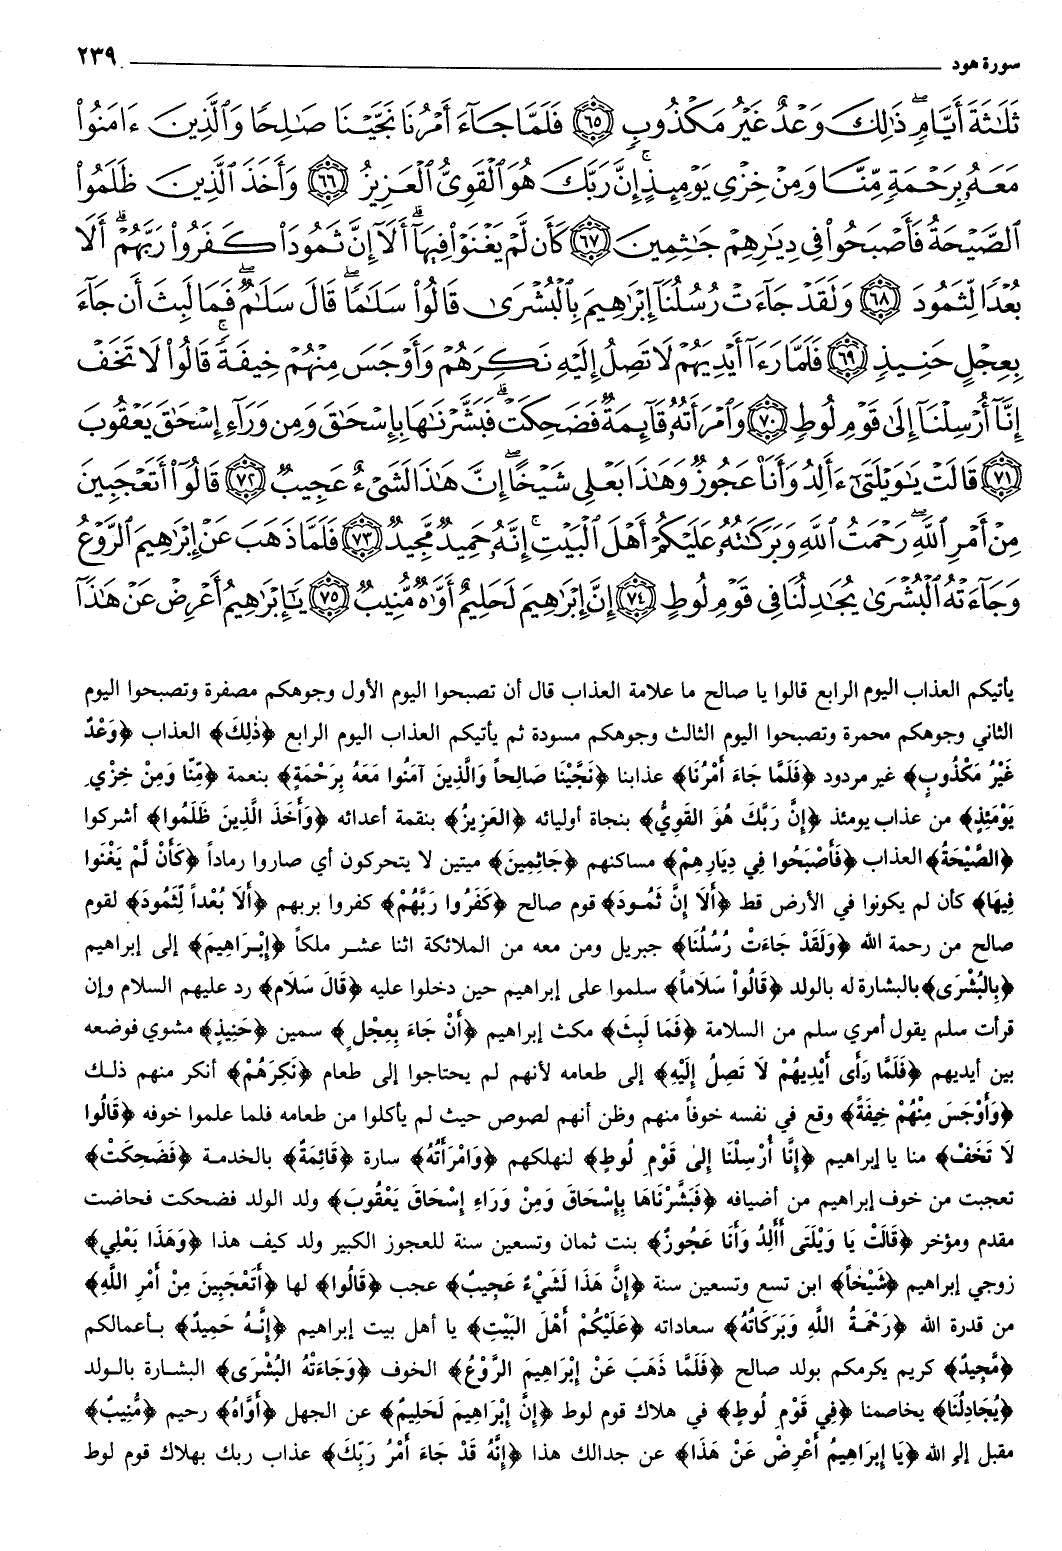 سورة هود ٢٣٩
ثَلَٰثَةَ أَيَّامٍۖ ذَٰلِكَ وَعْدٌ غَيْرُ مَكْذُوبٍ ﴿٦٥﴾ فَلَمَّا جَآءَ أَمْرُنَا نَجَّيْنَا صَٰلِحًا وَٱلَّذِينَ ءَامَنُوا۟
مَعَهُۥ بِرَحْمَةٍ مِّنَّا وَمِنْ خِزْىِ يَوْمِئِذٍۗ إِنَّ رَبَّكَ هُوَ ٱلْقَوِىُّ ٱلْعَزِيزُ ﴿٦٦﴾ وَأَخَذَ ٱلَّذِينَ ظَلَمُوا۟
ٱلصَّيْحَةُ فَأَصْبَحُوا۟ فِى دِيَٰرِهِمْ جَٰثِمِينَ ﴿٦٧﴾ كَأَن لَّمْ يَغْنَوْا۟ فِيهَآۗ أَلَآ إِنَّ ثَمُودَا۟ كَفَرُوا۟ رَبَّهُمْۗ أَلَا
بُعْدًا لِّثَمُودَ ﴿٦٨﴾ وَلَقَدْ جَآءَتْ رُسُلُنَآ إِبْرَٰهِيمَ بِٱلْبُشْرَىٰ قَالُوا۟ سَلَٰمًاۖ قَالَ سَلَٰمٌۖ فَمَا لَبِثَ أَن جَآءَ
بِعِجْلٍ حَنِيذٍ ﴿٦٩﴾ فَلَمَّا رَءَآ أَيْدِيَهُمْ لَا تَصِلُ إِلَيْهِ نَكِرَهُمْ وَأَوْجَسَ مِنْهُمْ خِيفَةًۚ قَالُوا۟ لَا تَخَفْ
إِنَّآ أُرْسِلْنَآ إِلَىٰ قَوْمِ لُوطٍ ﴿٧٠﴾ وَٱمْرَأَتُهُۥ قَآئِمَةٌ فَضَحِكَتْ فَبَشَّرْنَٰهَا بِإِسْحَٰقَ وَمِن وَرَآءِ إِسْحَٰقَ يَعْقُوبَ
﴿٧١﴾ قَالَتْ يَٰوَيْلَتَىٰٓ ءَأَلِدُ وَأَنَا۠ عَجُوزٌ وَهَٰذَا بَعْلِى شَيْخًاۖ إِنَّ هَٰذَا لَشَىْءٌ عَجِيبٌ ﴿٧٢﴾ قَالُوٓا۟ أَتَعْجَبِينَ
مِنْ أَمْرِ ٱللَّهِۖ رَحْمَتُ ٱللَّهِ وَبَرَكَٰتُهُۥ عَلَيْكُمْ أَهْلَ ٱلْبَيْتِۚ إِنَّهُۥ حَمِيدٌ مَّجِيدٌ ﴿٧٣﴾ فَلَمَّا ذَهَبَ عَنْ إِبْرَٰهِيمَ ٱلرَّوْعُ
وَجَآءَتْهُ ٱلْبُشْرَىٰ يُجَٰدِلُنَا فِى قَوْمِ لُوطٍ ﴿٧٤﴾ إِنَّ إِبْرَٰهِيمَ لَحَلِيمٌ أَوَّٰهٌ مُّنِيبٌ ﴿٧٥﴾ يَٰٓإِبْرَٰهِيمُ أَعْرِضْ عَنْ هَٰذَآ
يأتيكم العذاب اليوم الرابع قالوا يا صالح ما علامة العذاب قال أن تصبحوا اليوم الأول وجوهكم مصفرة وتصبحوا اليوم
الثاني وجوهكم محمرة وتصبحوا اليوم الثالث وجوهكم مسودة ثم يأتيكم العذاب اليوم الرابع ﴿ذٰلِكَ﴾ العذاب ﴿وَعْدٌ
غَيْرُ مَكْذُوبٍ﴾ غير مردود ﴿فَلَمَّا جَاءَ أَمْرُنَا﴾ عذابنا ﴿نَجَّيْنَا صَالِحاً وَالَّذِينَ آمَنُوا مَعَهُ بِرَحْمَةٍ﴾ بنعمة ﴿مِّنّا وَمِنْ خِزْيِ
يَوْمَئِذٍ﴾ من عذاب يومئذ ﴿إِنَّ رَبَّكَ هُوَ القَوِيُّ﴾ بنجاة أوليائه ﴿العَزِيزُ﴾ بنقمة أعدائه ﴿وَأَخَذَ الَّذِينَ ظَلَمُوا﴾ أشركوا
﴿الصَّيْحَةُ﴾ العذاب ﴿فَأَصْبَحُوا فِي دِيَارِهِمْ﴾ مساكنهم ﴿جَاثِمِينَ﴾ ميتين لا يتحركون أي صاروا رماداً ﴿كَأَنْ لَّمْ يَغْنَوا
فِيهَا﴾ كأن لم يكونوا في الأرض قط ﴿أَلَا إِنَّ ثَمُودَ﴾ قوم صالح ﴿كَفَرُوا رَبَّهُمْ﴾ كفروا بربهم ﴿أَلَا بُعْداً لِّثَمُودَ﴾ لقوم
صالح من رحمة الله ﴿وَلَقَدْ جَاءَتْ رُسُلُنَا﴾ جبريل ومن معه من الملائكة اثنا عشر ملكاً ﴿إِبْرَاهِيمَ﴾ إلى إبراهيم
﴿بِالبُشْرَى﴾ بالبشارة له بالولد ﴿قَالُواْ سَلَاماً﴾ سلموا على إبراهيم حين دخلوا عليه ﴿قَالَ سَلَام﴾ رد عليهم السلام وإن
قرأت سلم يقول أمري سلم من السلامة ﴿فَمَا لَبِثَ﴾ مكث إبراهيم ﴿أَنْ جَاءَ بِعِجْلٍ﴾ سمين ﴿حَنِيذٍ﴾ مشوي فوضعه
بين أيديهم ﴿فَلَمَّا رَأَى أَيْدِيَهُمْ لَا تَصِلُ إِلَيْهِ﴾ إلى طعامه لأنهم لم يحتاجوا إلى طعام ﴿نَكِرَهُمْ﴾ أنكر منهم ذلك
﴿وَأَوْجَسَ مِنْهُمْ خِيفَةً﴾ وقع في نفسه خوفاً منهم وظن أنهم لصوص حيث لم يأكلوا من طعامه فلما علموا خوفه ﴿قَالُوا
لَا تَخَفْ﴾ منا يا إبراهيم ﴿إِنَّا أُرْسِلْنَا إِلىٰ قَوْمِ لُوطٍ﴾ لنهلكهم ﴿وَامْرَأَتُهُ﴾ سارة ﴿قَائِمَةٌ﴾ بالخدمة ﴿فَضَحِكَتْ﴾
تعجبت من خوف إبراهيم من أضيافه ﴿فَبَشَّرْنَاهَا بِإِسْحَاقَ وَمِنْ وَرَاءِ إِسْحَاقَ يَعْقُوبَ﴾ ولد الولد فضحكت فحاضت
مقدم ومؤخر ﴿قَالَتْ يَا وَيْلَتَى أَأَلِدُ وَأَنَا عَجُوزٌ﴾ بنت ثمان وتسعين سنة للعجوز الكبير ولد كيف هذا ﴿وَهَذَا بَعْلِي﴾
زوجي إبراهيم ﴿شَيْخاً﴾ ابن تسع وتسعين سنة ﴿إِنَّ هَذَا لَشَيْءٌ عَجِيبٌ﴾ عجب ﴿قَالُوا﴾ لها ﴿أَتَعْجَبِينَ مِنْ أَمْرِ اللَّهِ﴾
من قدرة الله ﴿رَحْمَةُ اللَّهِ وَبَرَكَاتُهُ﴾ سعاداته ﴿عَلَيْكُمْ أَهْلَ البَيْتِ﴾ يا أهل بيت إبراهيم ﴿إِنَّهُ حَمِيدٌ﴾ بأعمالكم
﴿مَّجِيدٌ﴾ كريم يكرمكم بولد صالح ﴿فَلَمَّا ذَهَبَ عَنْ إِبْرَاهِيمَ الرَّوْعُ﴾ الخوف ﴿وَجَاءَتْهُ البُشْرَى﴾ البشارة بالولد
﴿يُجَادِلُنَا﴾ يخاصمنا ﴿فِي قَوْمِ لُوطٍ﴾ في هلاك قوم لوط ﴿إِنَّ إِبْرَاهِيمَ لَحَلِيمٌ﴾ عن الجهل ﴿أَوَّاهُ﴾ رحيم ﴿مُّنِيبٌ﴾
مقبل إلى الله ﴿يَا إِبْرَاهِيمُ أَعْرِضْ عَنْ هَذَا﴾ عن جدالك هذا ﴿إِنَّهُ قَدْ جَاءَ أَمْرُ رَبِّكَ﴾ عذاب ربك بهلاك قوم لوط